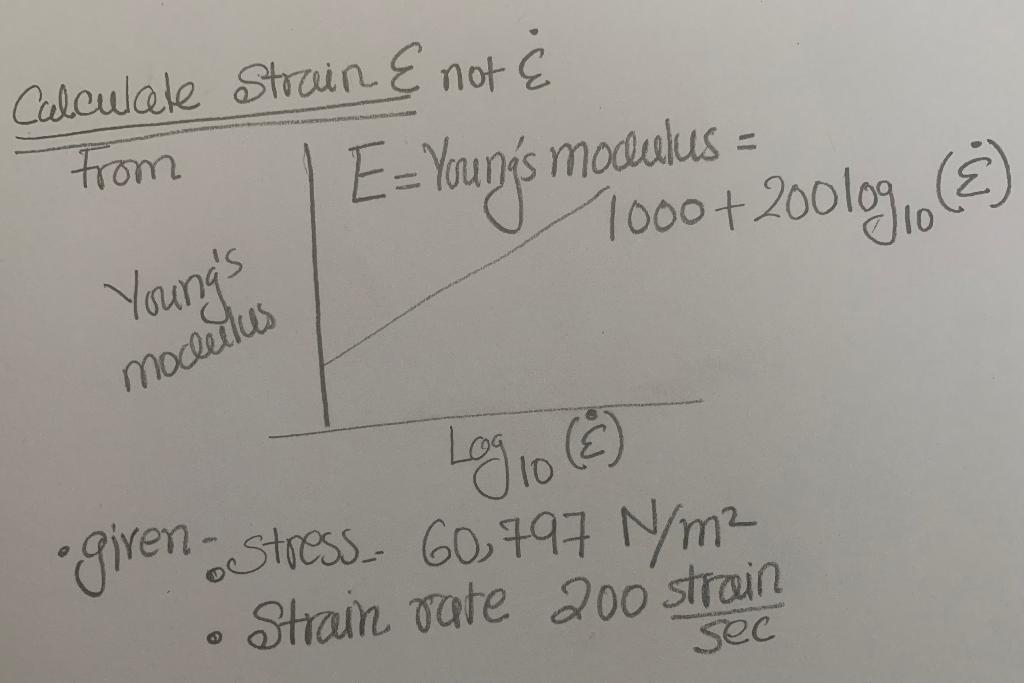 Calculate Strain Ɛ not Ɛ̇
From
E = Young's modulus =
1000 + 200 log₁₀ (Ɛ̇)
Young's
modulus
Log₁₀ (Ɛ̇)
• given - • stress - 60,797 N/m²
• Strain rate 200 strain/sec